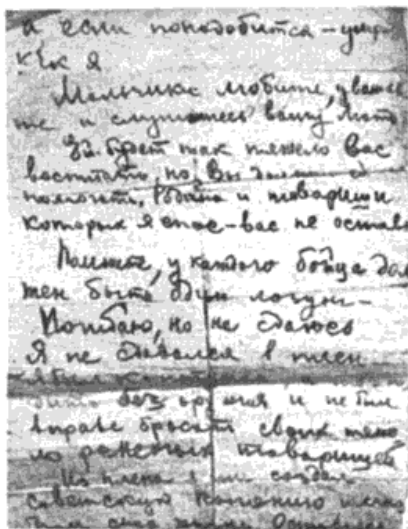 и если понадобится – умри
как я
Мальчики любите, уважай
те и слушайтесь вашу мать
Ей будет так тяжело вас
воспитать, но Вы должны ей
помогать, Родина и товарищи
которых я спас – вас не оставят
Помните, у каждого бойца дол
жен быть один лозунг –
Погибаю, но не сдаюсь
Я не сдавался в плен
я был
без оружия и не был
вправе бросать своих тяже
ло раненых товарищей
Из плена
советскую